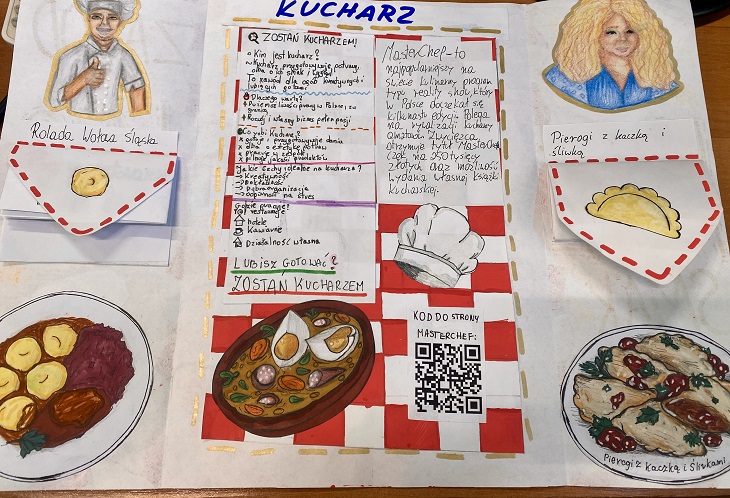 KUCHARZ
Rolada Wołowa Śląska
ZOSTAŃ KUCHARZEM!
Kim jest kucharz?
Kucharz przygotowuje potrawy,
dba o ich smak i wygląd!
To zawód dla osób kreatywnych i
lubiących gotować
Dlaczego warto?
Dużo możliwości pracy w Polsce i za
granicą
Rozwój i własny biznes
Co robi kucharz?
x gotuje i przygotowuje dania
x dba o estetykę potraw
x pracuje w zespole
x pilnuje jakości produktów
Jakie cechy idealne na kucharza?
→ Kreatywność
→ Dokładność
→ Dobra organizacja
→ Odporność na stres
Gdzie pracuje?
restauracje
hotele
Kawiarnie
Działalność własna
LUBISZ GOTOWAĆ?
ZOSTAŃ KUCHARZEM
MasterChef – to
najpopularniejszy na
świecie kulinarny program
typu reality show, który
w Polsce doczekał się
kilkunastu edycji. Polega
na rywalizacji kucharzy
amatorów. Zwycięzca
otrzymuje tytuł MasterChefa,
czek na 250 tysięcy
złotych oraz możliwość
wydania własnej książki
kucharskiej.
KOD DO STRONY
MASTERCHEF:
Pierogi z kaczką i
śliwką
Pierogi z kaczką i śliwkami